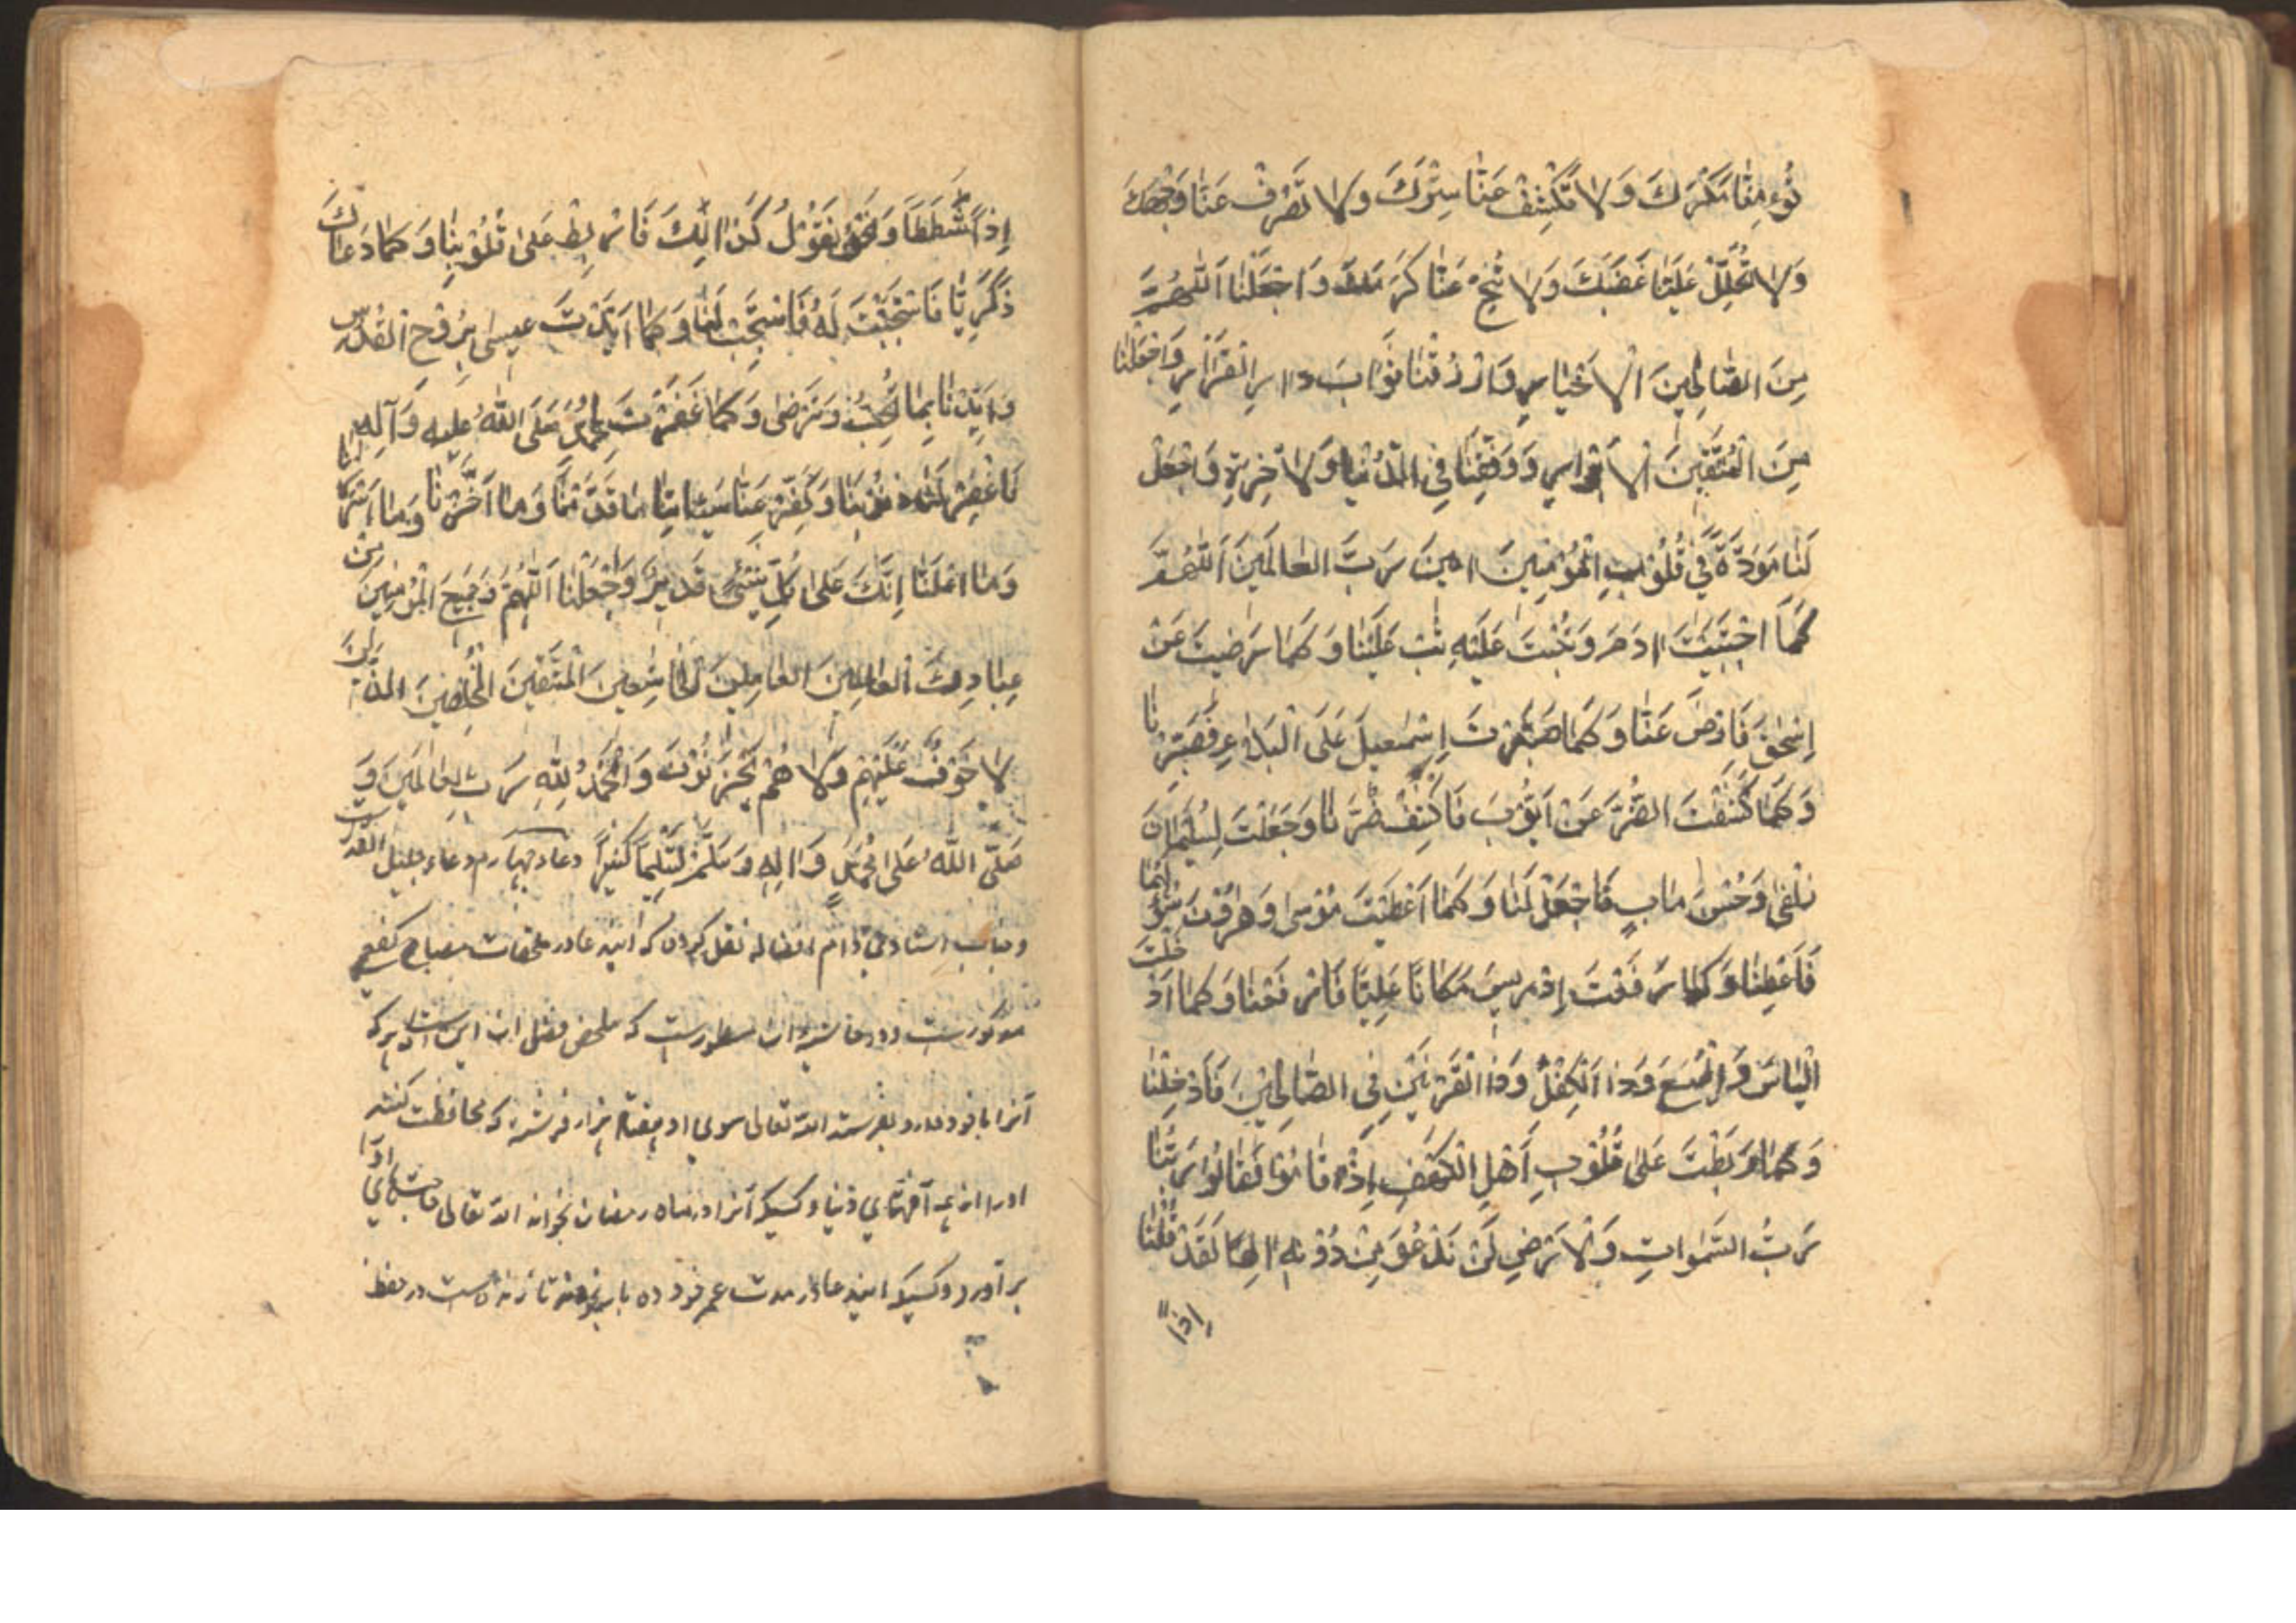 تُؤْمِنَّا مَكْرَكَ وَلَا تَكْشِفْ عَنَّا سِتْرَكَ وَلَا تَصْرِفْ عَنَّا وَجْهَكَ
وَلَا تُحْلِلْ عَلَيْنَا غَضَبَكَ وَلَا تُنَحِّ عَنَّا كَرَمَكَ وَاجْعَلْنَا اَللّٰهُمَّ
مِنَ الصَّالِحِينَ الْاَخْيَارِ وَارْزُقْنَا ثَوَابَ دَارِ الْقَرَارِ وَاجْعَلْنَا
مِنَ الْمُتَّقِينَ الْاَبْرَارِ وَوَفِّقْنَا فِي الدُّنْيَا وَالْاٰخِرَةِ وَاجْعَلْ
لَنَا مَوَدَّةً فِي قُلُوبِ الْمُؤْمِنِينَ اٰمِينَ رَبَّ الْعَالَمِينَ اَللّٰهُمَّ
كَمَا اجْتَبَيْتَ اٰدَمَ وَتُبْتَ عَلَيْهِ تُبْ عَلَيْنَا وَكَمَا رَضِيتَ عَنْ
اِسْحٰقَ فَارْضَ عَنَّا وَكَمَا صَبَّرْتَ اِسْمٰعِيلَ عَلَى الْبَلَاءِ فَصَبِّرْنَا
وَكَمَا كَشَفْتَ الضُّرَّ عَنْ اَيُّوبَ فَاكْشِفْ ضُرَّنَا وَجَعَلْتَ لِسُلَيْمَانَ
زُلْفٰى وَحُسْنَ مَاٰبٍ فَاجْعَلْ لَنَا وَكَمَا اَعْطَيْتَ مُوسٰى وَهٰرُونَ سُؤْلَهُمَا
فَاَعْطِنَا وَكَمَا رَفَعْتَ اِدْرِيسَ مَكَانًا عَلِيًّا فَارْفَعْنَا وَكَمَا اَدْخَلْتَ
اِلْيَاسَ وَالْيَسَعَ وَذَا الْكِفْلِ وَذَا الْقَرْنَيْنِ فِي الصَّالِحِينَ فَاَدْخِلْنَا
وَكَمَا رَبَطْتَ عَلٰى قُلُوبِ اَهْلِ الْكَهْفِ اِذْ قَامُوا فَقَالُوا رَبُّنَا
رَبُّ السَّمٰوَاتِ وَالْاَرْضِ لَنْ نَدْعُوَ مِنْ دُونِهِ اِلٰهًا لَقَدْ قُلْنَا
اِذًا
اِذًا شَطَطًا وَنَحْنُ نَقُولُ كَذٰلِكَ فَارْبِطْ عَلٰى قُلُوبِنَا وَكَمَا دَعَاكَ
زَكَرِيَّا فَاسْتَجَبْتَ لَهُ فَاسْتَجِبْ لَنَا وَكَمَا اَيَّدْتَ عِيسٰى بِرُوحِ الْقُدُسِ
وَاَيِّدْنَا بِمَا تُحِبُّ وَتَرْضٰى وَكَمَا غَفَرْتَ لِمُحَمَّدٍ صَلَّى اللّٰهُ عَلَيْهِ وَآلِهِ
فَاغْفِرْ لَنَا ذُنُوبَنَا وَكَفِّرْ عَنَّا سَيِّئَاتِنَا مَا قَدَّمْنَا وَمَا اَخَّرْنَا وَمَا اَسْرَرْنَا
وَمَا اَعْلَنَّا اِنَّكَ عَلٰى كُلِّ شَيْءٍ قَدِيرٌ وَاجْعَلْنَا اَللّٰهُمَّ وَجَمِيعَ الْمُؤْمِنِينَ مِنْ
عِبَادِكَ الْعَالِمِينَ الْعَامِلِينَ الْخَاشِعِينَ الْمُتَّقِينَ الْمُخْلِصِينَ الَّذِينَ
لَا خَوْفٌ عَلَيْهِمْ وَلَا هُمْ يَحْزَنُونَ وَالْحَمْدُ لِلّٰهِ رَبِّ الْعَالَمِينَ وَ
صَلَّى اللّٰهُ عَلٰى مُحَمَّدٍ وَاٰلِهِ وَسَلَّمَ تَسْلِيمًا كَثِيرًا دعاء چهارم دعاء جلیل القدریست
وجناب استادی دام افضاله نقل کردن که این دعا در ملحقات مصباح کفعمی
مذکورست و در حاشیه ان مسطورست که ملخص فضل ان این است که هر که
آنرا با خود دارد بفرستد الله تعالی سوی او هفتاد هزار فرشته که محافظت کنند
او را از آفتهای دنیا و کسیکه آنرا در ماه رمضان بخواند الله تعالی حاجتهای او را
برآورد و کسیکه این دعا در مدت عمر خود ده بار بخواند تا زنده است در حفظ